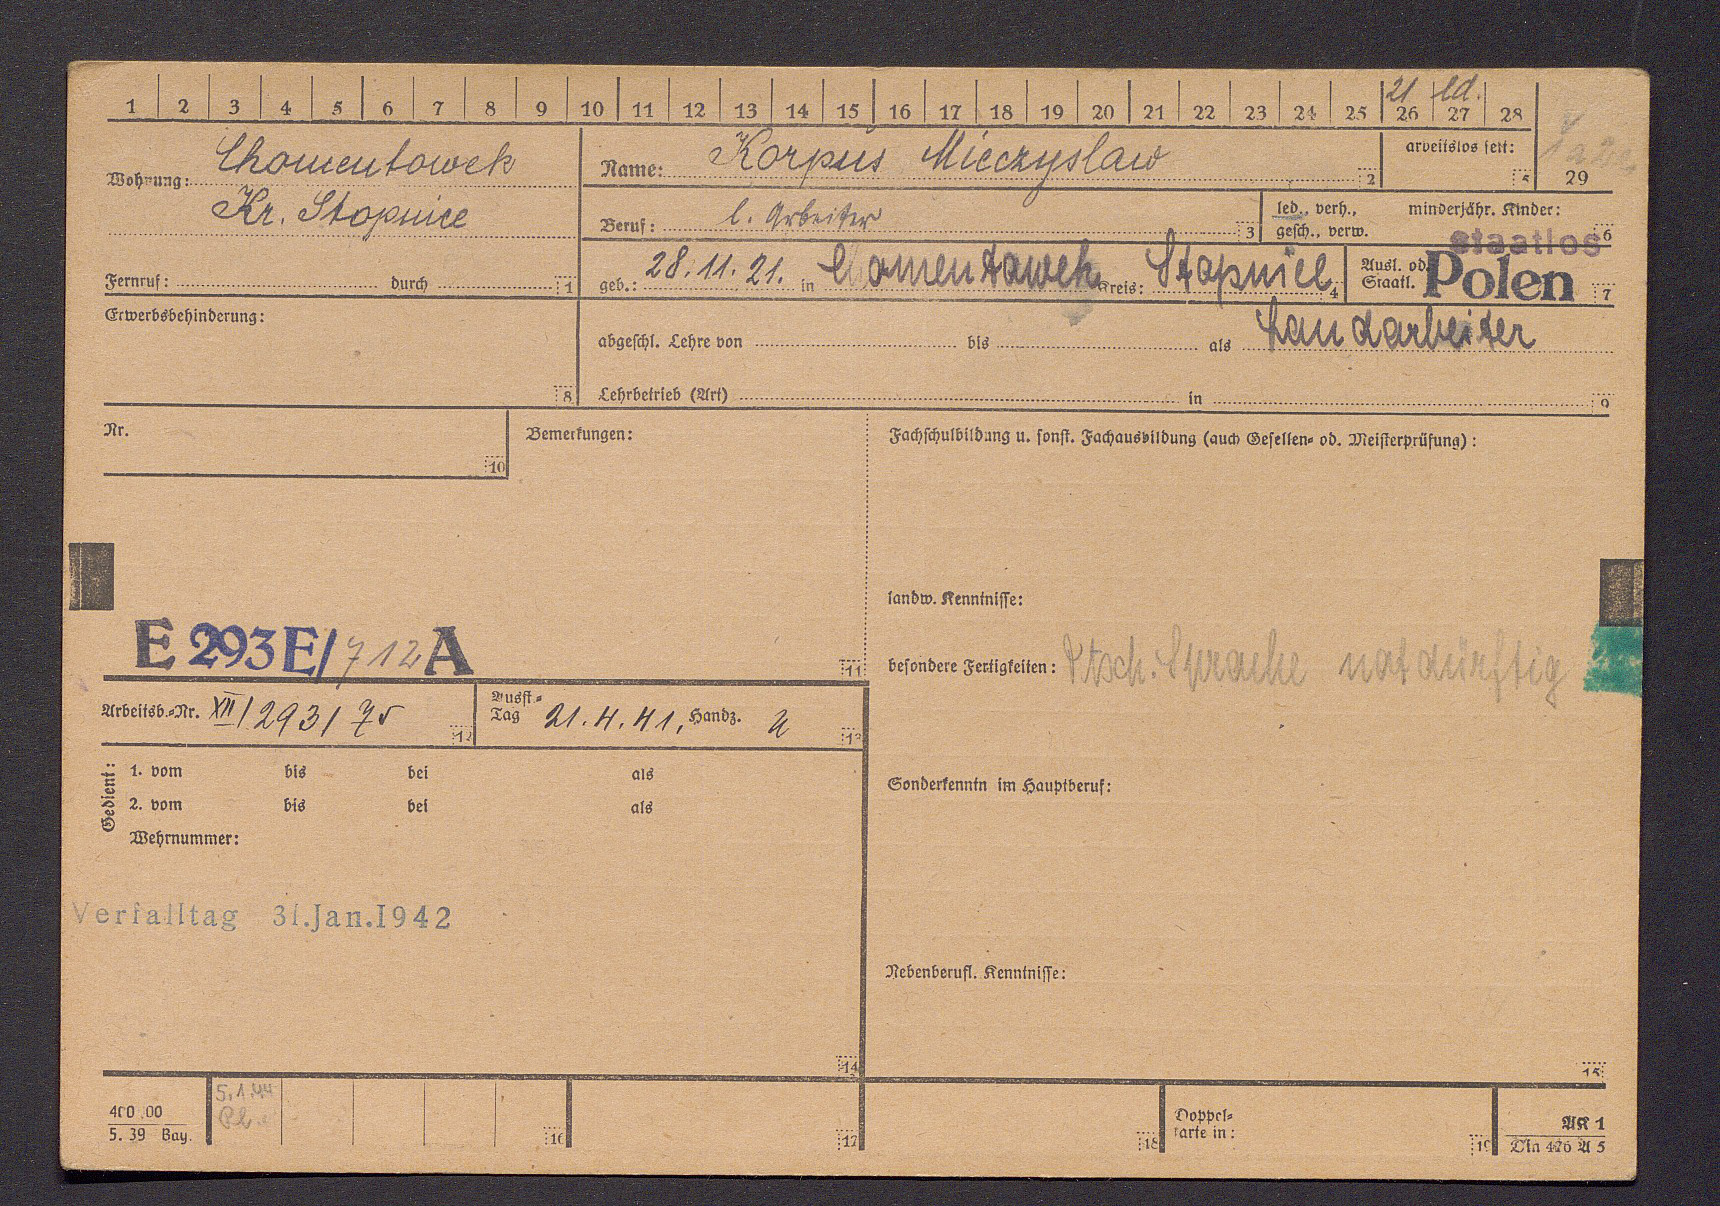 1 2 3 4 5 6 7 8 9 10 11 12 13 14 15 16 17 18 19 20 21 22 23 24 25 26 27 28
21 led.
29
Wohnung: Chomentowek
Kr. Stopnice
Fernruf: durch 1
Name: Korpus Mieczyslaw 2
arbeitslos seit: 5
Beruf: l. Arbeiter 3
led., verh.,
gesch., verw.
minderjähr. Kinder: 6
staatlos
geb.: 28.11.21. in Chomentowek Kreis: Stopnice 4
Ausl. od.
Staatl. Polen 7
Erwerbsbehinderung:
8
abgeschl. Lehre von bis als Landarbeiter
Lehrbetrieb (Art) in 9
Nr.
10
Bemerkungen:
Fachschulbildung u. sonst. Fachausbildung (auch Gesellen- od. Meisterprüfung):
landw. Kenntnisse:
E 293E/712 A
11
besondere Fertigkeiten: Dtsch. Sprache notdürftig
Arbeitsb.-Nr. XII/293/75 12
Ausst.-
Tag 21.4.41, Handz. 13
Gedient:
1. vom bis bei als
2. vom bis bei als
Wehrnummer:
Sonderkenntn im Hauptberuf:
Verfalltag 31.Jan.I942
Nebenberufl. Kenntnisse:
14
15
400 00
5. 39 Bay.
5.1.44
16
17
18
Doppel-
karte in: 19
AK 1
Din 476 A 5